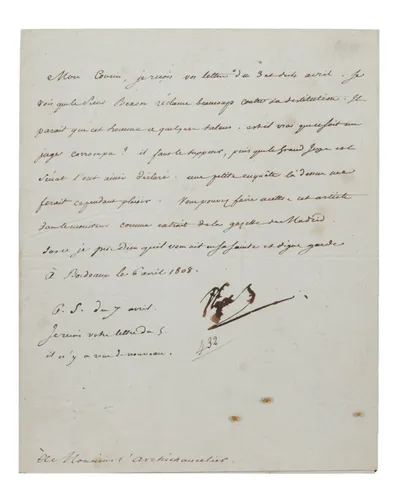 Mon Cousin, je reçois vos lettres du 3 et du 4 avril. Je
vois que le Sieur Bexon réclame beaucoup contre sa destitution. Il
paroit que cet homme a quelque talent. est-il vrai que ce soit un
juge corrompu? il faut le supposer, puis que le Grand Juge et le
Sénat l'ont ainsi déclaré. une petite enquête là dessus me
feroit cependant plaisir. Vous pouvez faire mettre cet article
dans le moniteur comme extrait de la gazette de Madrid.
Sur ce je prie Dieu qu'il vous ait en sa sainte et digne garde
à Bordeaux le 6 avril 1808.
P. S. du 7 avril.
Je reçois votre lettre du 5
il n'y a rien de nouveau.
432
à Mr Monsieur l'Archichancelier.